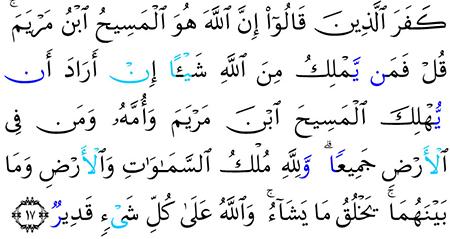 كَفَرَ ٱلَّذِينَ قَالُوٓا۟ إِنَّ ٱللَّهَ هُوَ ٱلْمَسِيحُ ٱبْنُ مَرْيَمَ ۚ
قُلْ فَمَن يَّمْلِكُ مِنَ ٱللَّهِ شَيْـًٔا إِنْ أَرَادَ أَن
يُّهْلِكَ ٱلْمَسِيحَ ٱبْنَ مَرْيَمَ وَأُمَّهُۥ وَمَن فِى
ٱلْأَرْضِ جَمِيعًا ۗ وَّلِلَّهِ مُلْكُ ٱلسَّمَـٰوَٰتِ وَٱلْأَرْضِ وَمَا
بَيْنَهُمَا ۚ يَخْلُقُ مَا يَشَآءُ ۚ وَٱللَّهُ عَلَىٰ كُلِّ شَىْءٍ قَدِيرٌ ﴿١٧﴾